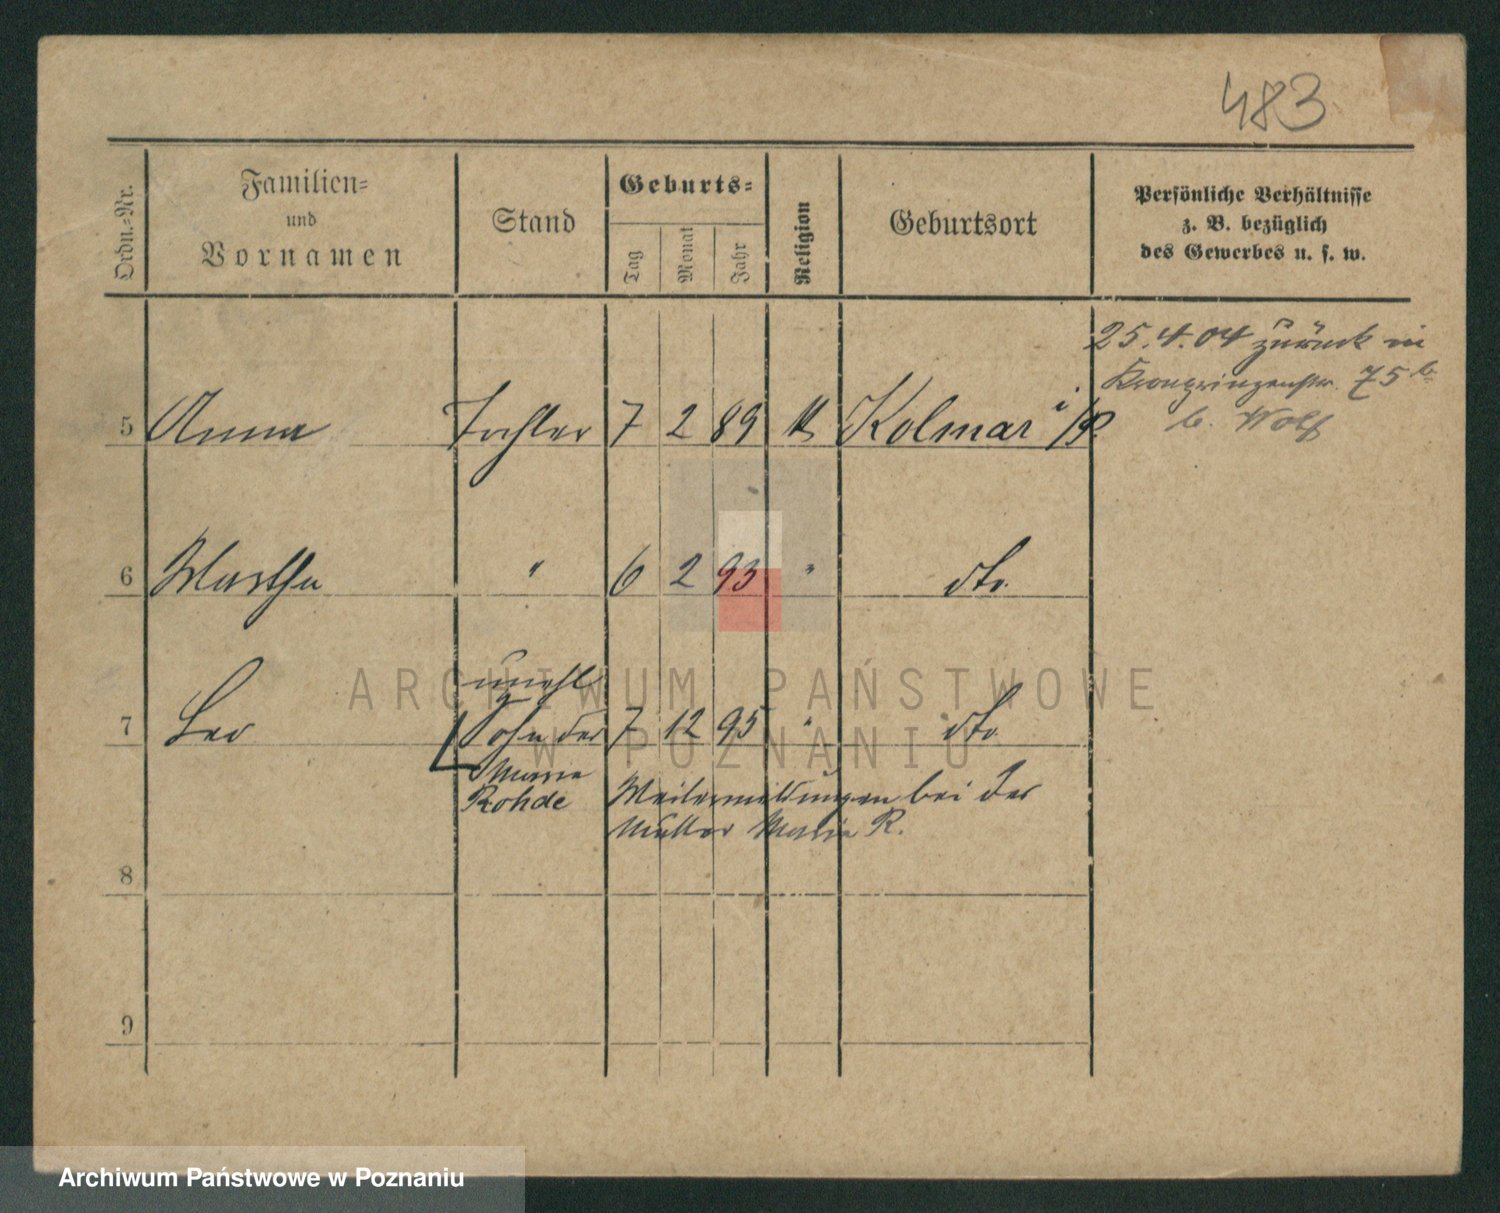 483
Ordn.-Nr.
Familien-
und
Vornamen
Stand
Geburts-
Tag
Monat
Jahr
Religion
Geburtsort
Persönliche Verhältnisse
z. B. bezüglich
des Gewerbes u. s. w.
25.4.04 zurück in
Kronprinzenstr. 75 b
b. Wolf
5 Anna Tochter 7 2 89 K Kolmar i/P.
6 Martha " 6 2 93 " dto.
unehl
7 Leo Sohn der 7 12 95 " dto.
Maria
Rohde
Weitermeldungen bei der
Mutter Maria R.
8
9
ARCHIWUM PAŃSTWOWE
W POZNANIU
Archiwum Państwowe w Poznaniu